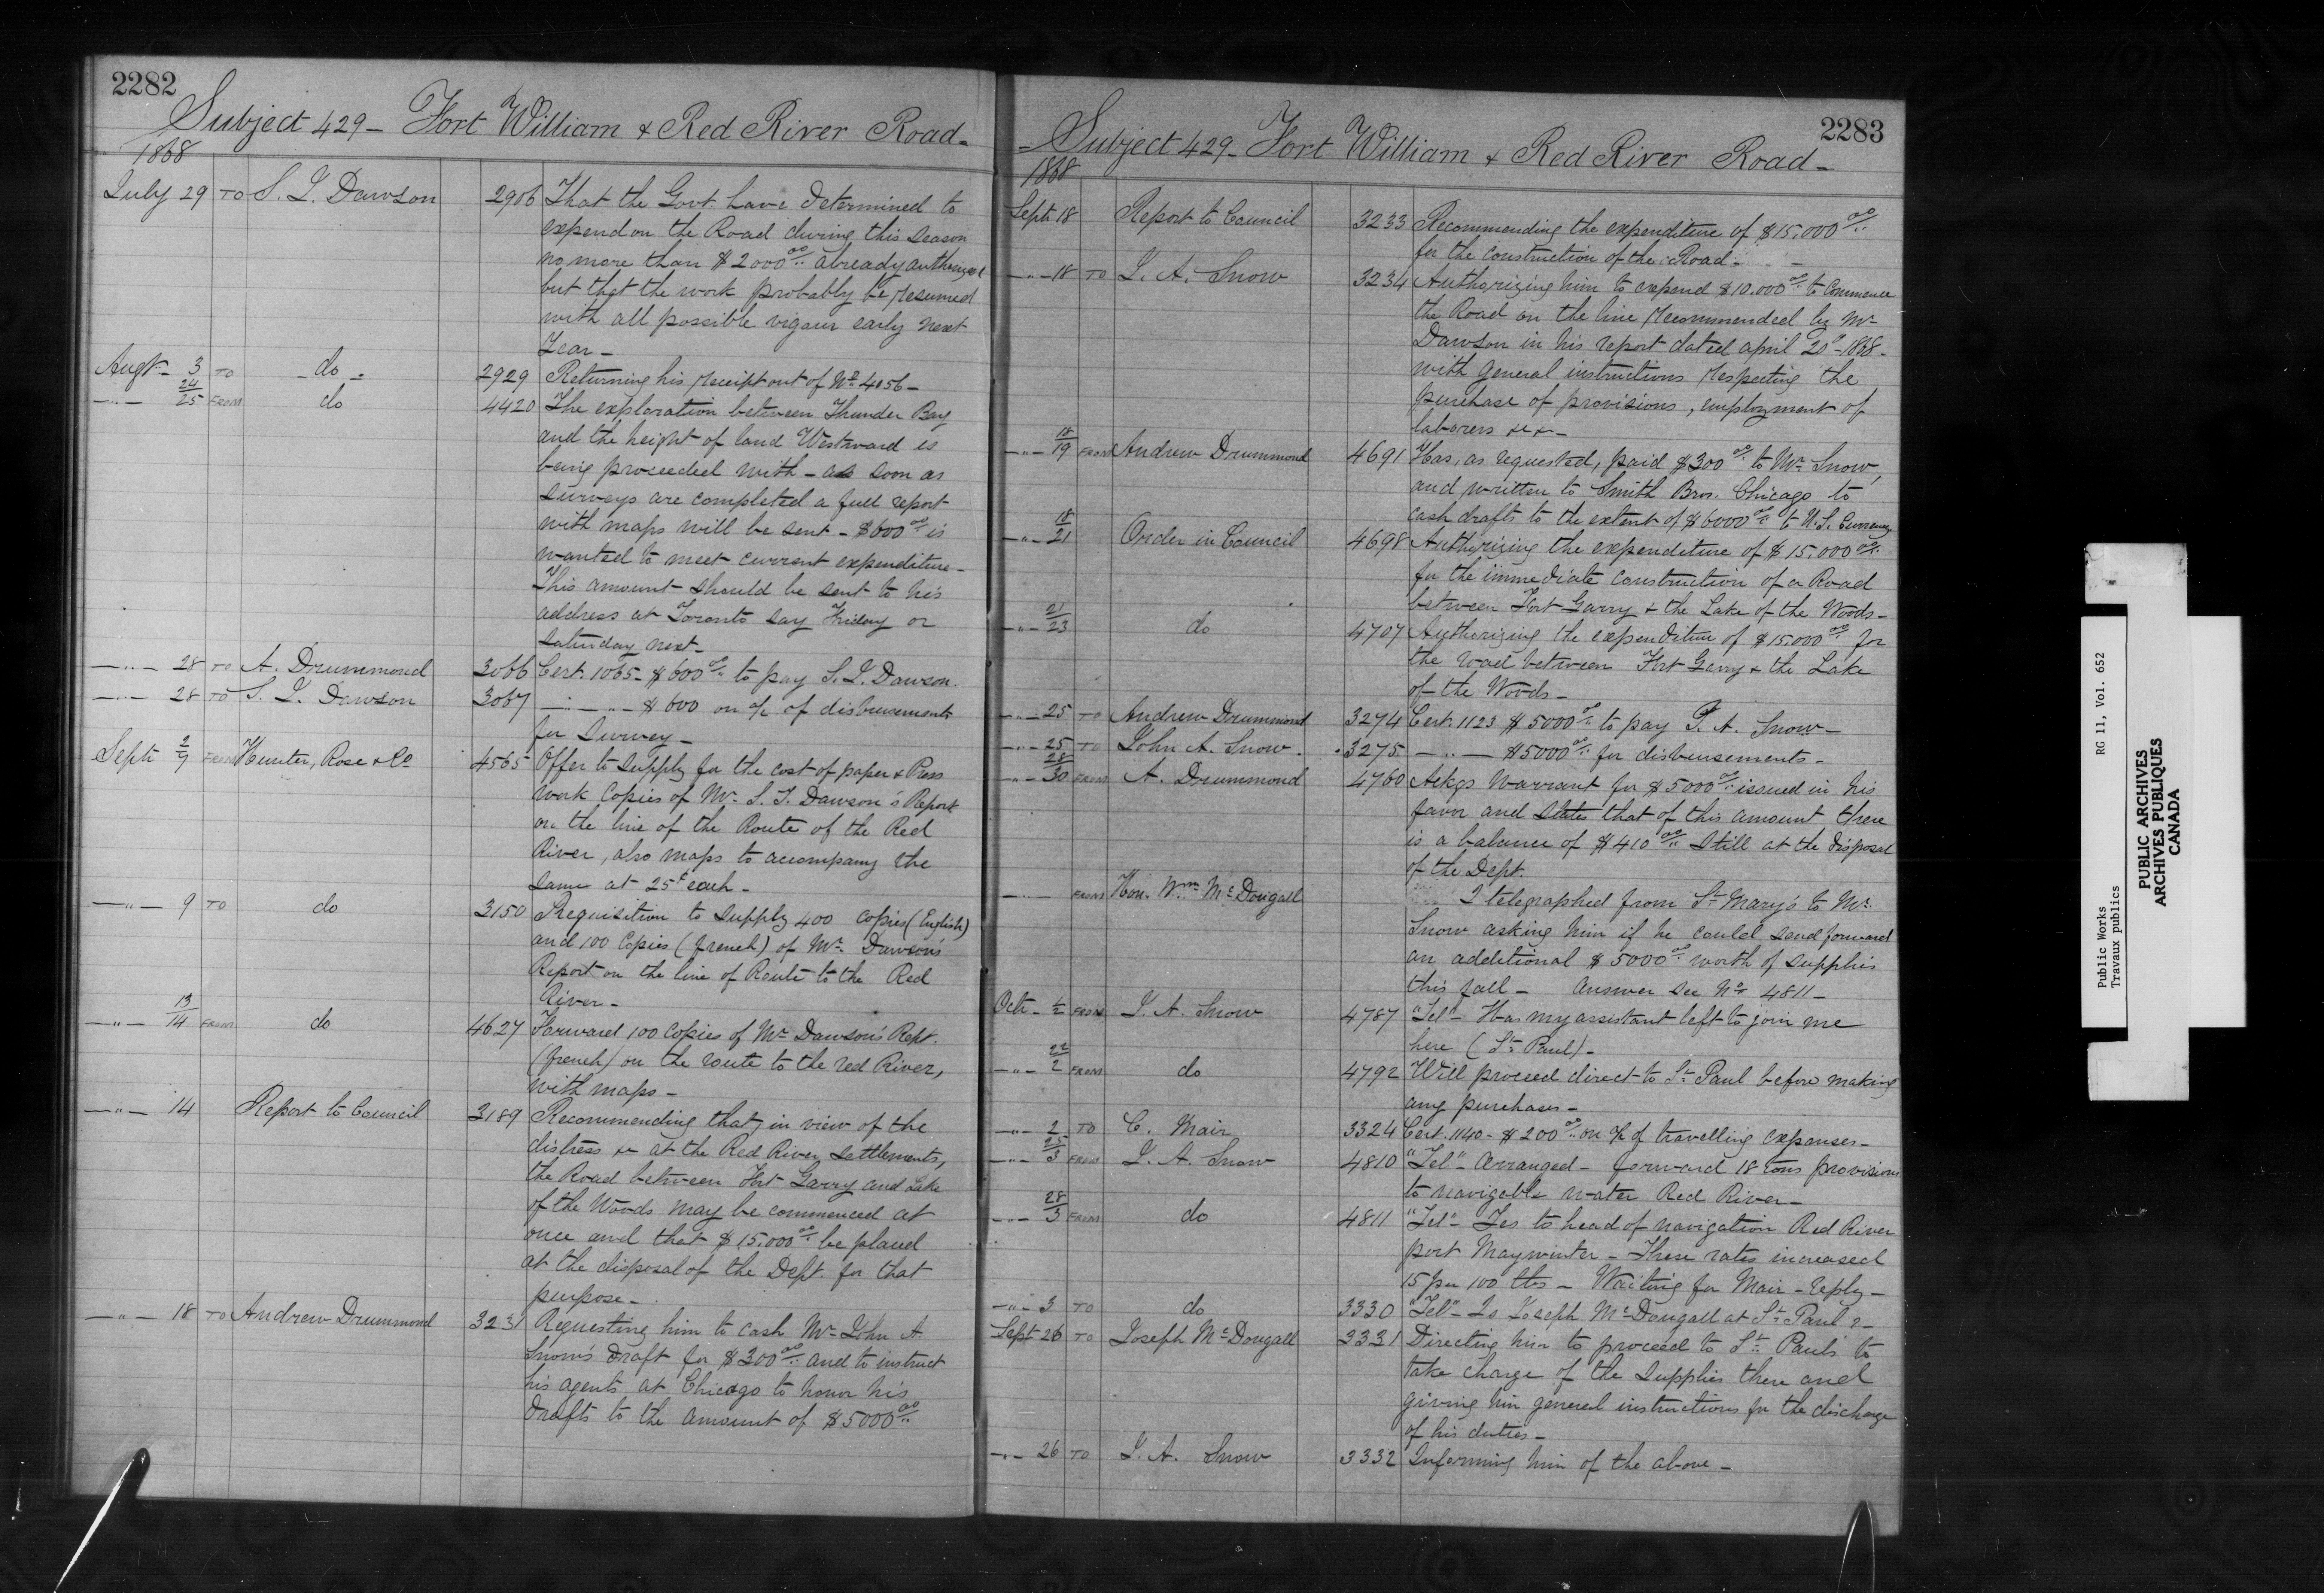 2282
Subject 429 - Fort William & Red River Road -
1868
July 29 TO S. J. Dawson 2906 That the Govt have determined to
expend on the Road during this season
no more than $2000.00 already authorized
but that the work probably be resumed
with all possible vigour early next
Year -
Augt - 3 TO - do - 2929 Returning his receipt out of No 4056 -
-"- 24/25 FROM do 4420 The exploration between Thunder Bay
and the height of land Westward is
being proceeded with - as soon as
surveys are completed a full report
with maps will be sent - $600.00 is
wanted to meet current expenditure -
This amount should be sent to his
address at Toronto say Friday or
Saturday next -
-"- 28 TO A. Drummond 3066 Cert. 1065 - $600.00 to pay S. J. Dawson.
-"- 28 TO S. J. Dawson 3067 -"-"- $600 on a/c of disbursements
for Survey -
Sept 2/7 FROM Hunter, Rose & Co 4565 Offer to supply for the cost of paper & Press
work Copies of Mr. S. J. Dawson's Report
on the line of the Route of the Red
River, also maps to accompany the
same at 25¢ each -
-"- 9 TO do 3150 Requisition to supply 400 copies (English)
and 100 Copies (french) of Mr. Dawson's
Report on the line of Route to the Red
River -
-"- 13/14 FROM do 4627 Forward 100 Copies of Mr Dawson's Rept.
(french) on the route to the red River,
with maps -
-"- 14 Report to Council 3189 Recommending that, in view of the
distress &c at the Red River settlements,
the Road between Fort Garry and Lake
of the Woods may be commenced at
once and that $15,000.00 be placed
at the disposal of the Dept. for that
purpose -
-"- 18 TO Andrew Drummond 3231 Requesting him to cash Mr John A.
Snow's Draft for $300.00 and to instruct
his agents at Chicago to honor his
Drafts to the amount of $5000.00
2283
Subject 429 - Fort William & Red River Road -
1868
Sept. 18 Report to Council 3233 Recommending the expenditure of $15,000.00
for the construction of the Road -
-"- 18 TO J. A. Snow 3234 Authorizing him to expend $10,000.00 to Commence
the Road on the line recommended by Mr
Dawson in his report dated april 20th - 1868 -
with general instructions respecting the
purchase of provisions, employment of
laborers &c &c -
-"- 18/19 FROM Andrew Drummond 4691 Has, as requested, paid $300.00 to Mr Snow,
and written to Smith Bros. Chicago to
cash drafts to the extent of $6000.00 to U.S. Currency
-"- 18/21 Order in Council 4698 Authorizing the expenditure of $15,000.00
for the immediate construction of a Road
between Fort Garry & the Lake of the Woods -
-"- 21/23 do 4707 Authorizing the expenditure of $15,000.00 for
the road between Fort Garry & the Lake
of the Woods -
-"- 25 TO Andrew Drummond 3274 Cert. 1123 $5000.00 to pay J. A. Snow -
-"- 25 TO John A. Snow. 3275 -"- $5000.00 for disbursements -
-"- 28/30 FROM A. Drummond 4760 Ackgs Warrant for $5000.00 issued in his
favor and states that of this amount there
is a balance of $410.00 still at the disposal
of the Dept.
-"- FROM Hon. Wm McDougall I telegraphed from St Mary's to Mr.
Snow asking him if he could send forward
an additional $5000.00 worth of supplies
this fall - Answer see No 4811 -
Oct. 1/2 FROM J. A. Snow 4787 "Tel" - Has my assistant left to join me
here (St Paul) -
-"- 22/2 FROM do 4792 Will proceed direct to St Paul before making
any purchases -
-"- 2 TO C. Mair 3324 Cert. 1140 - $200.00 on a/c of travelling expenses -
-"- 25/3 FROM J. A. Snow 4810 "Tel" - Arranged - forward 18 tons provisions
to navigable water Red River -
-"- 28/3 FROM do 4811 "Tel" - Yes to head of navigation Red River
port May winter - These rates increased
15 per 100 lbs - Waiting for Mair - reply -
-"- 3 TO do 3330 "Tel" - Is Joseph McDougall at St Paul? -
Sept 26 TO Joseph McDougall 3331 Directing him to proceed to St. Paul's to
take charge of the Supplies there and
giving him general instructions for the discharge
of his duties -
-"- 26 TO J. A. Snow 3332 Informing him of the above -
Public Works RG 11, Vol. 652
Travaux publics
PUBLIC ARCHIVES
ARCHIVES PUBLIQUES
CANADA